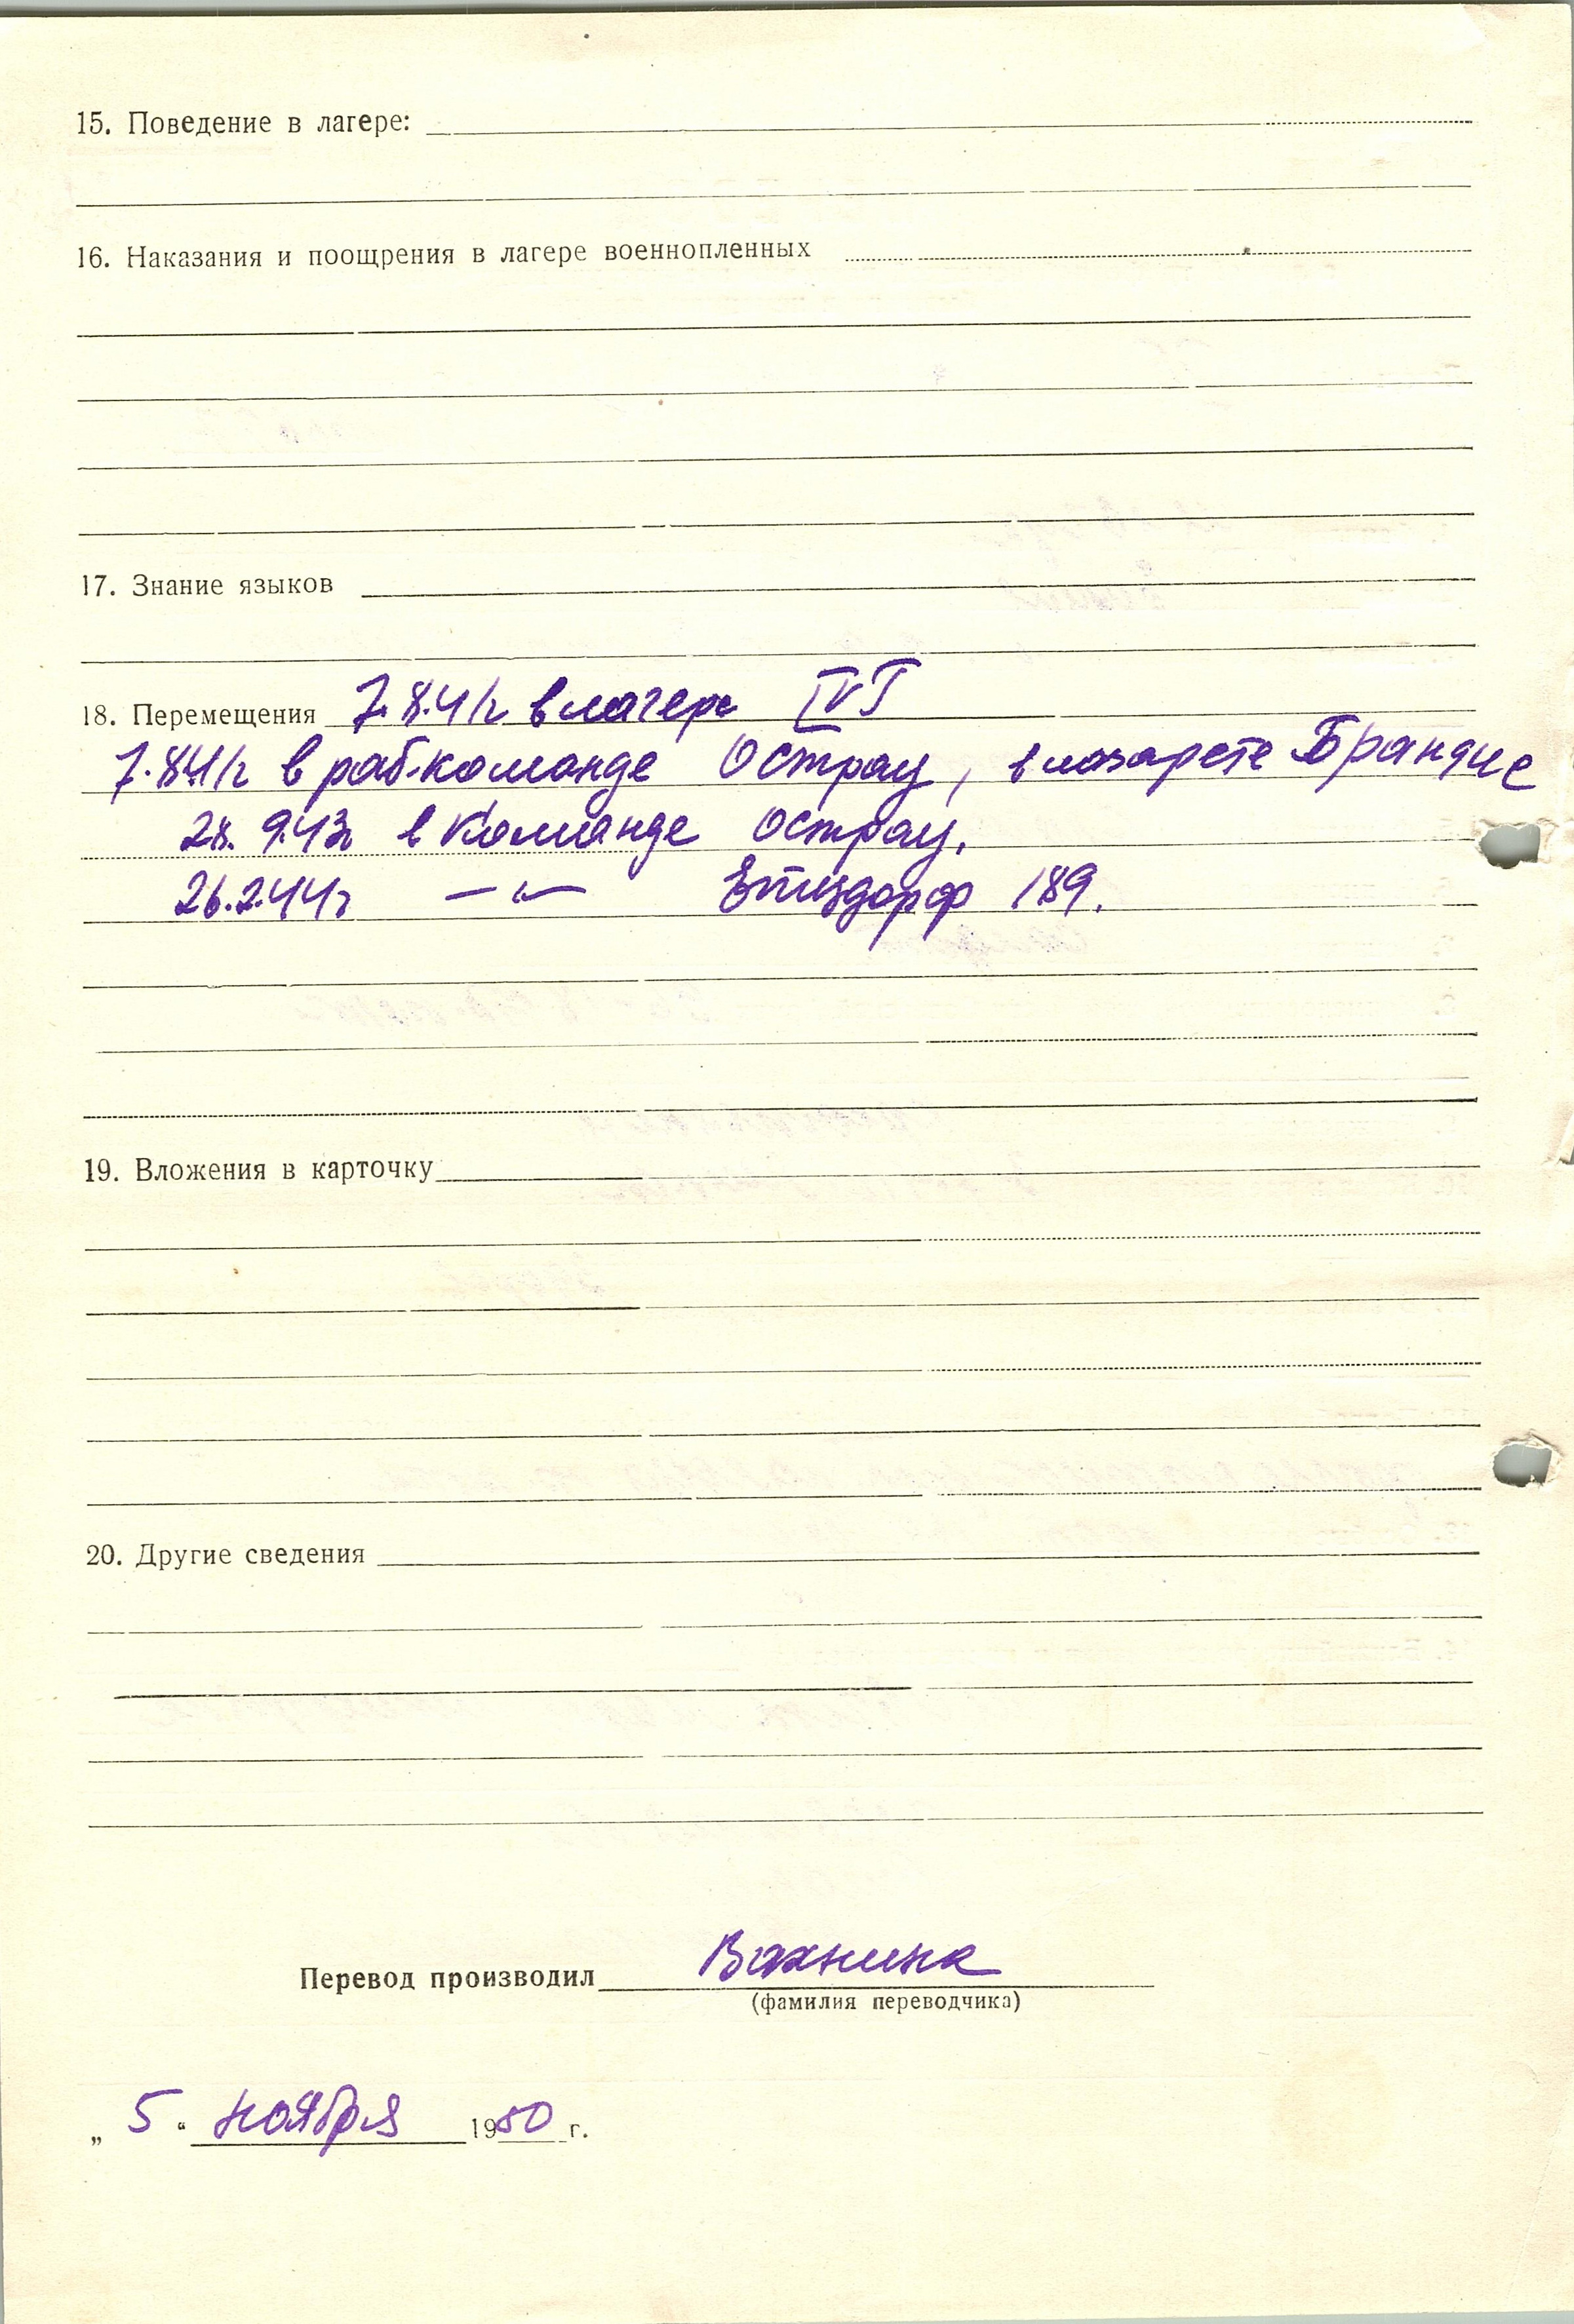 15. Поведение в лагере:
16. Наказания и поощрения в лагере военнопленных
17. Знание языков
18. Перемещения 7.8.41г в лагере IVГ
7.8.41г в раб.команде Острау, в лазарете Брандис
28.9.43г в команде Острау.
26.2.44г — " — 189.
19. Вложения в карточку
20. Другие сведения
Перевод производил Вахнина
(фамилия переводчика)
„ 5 “ ноября 1950 г.